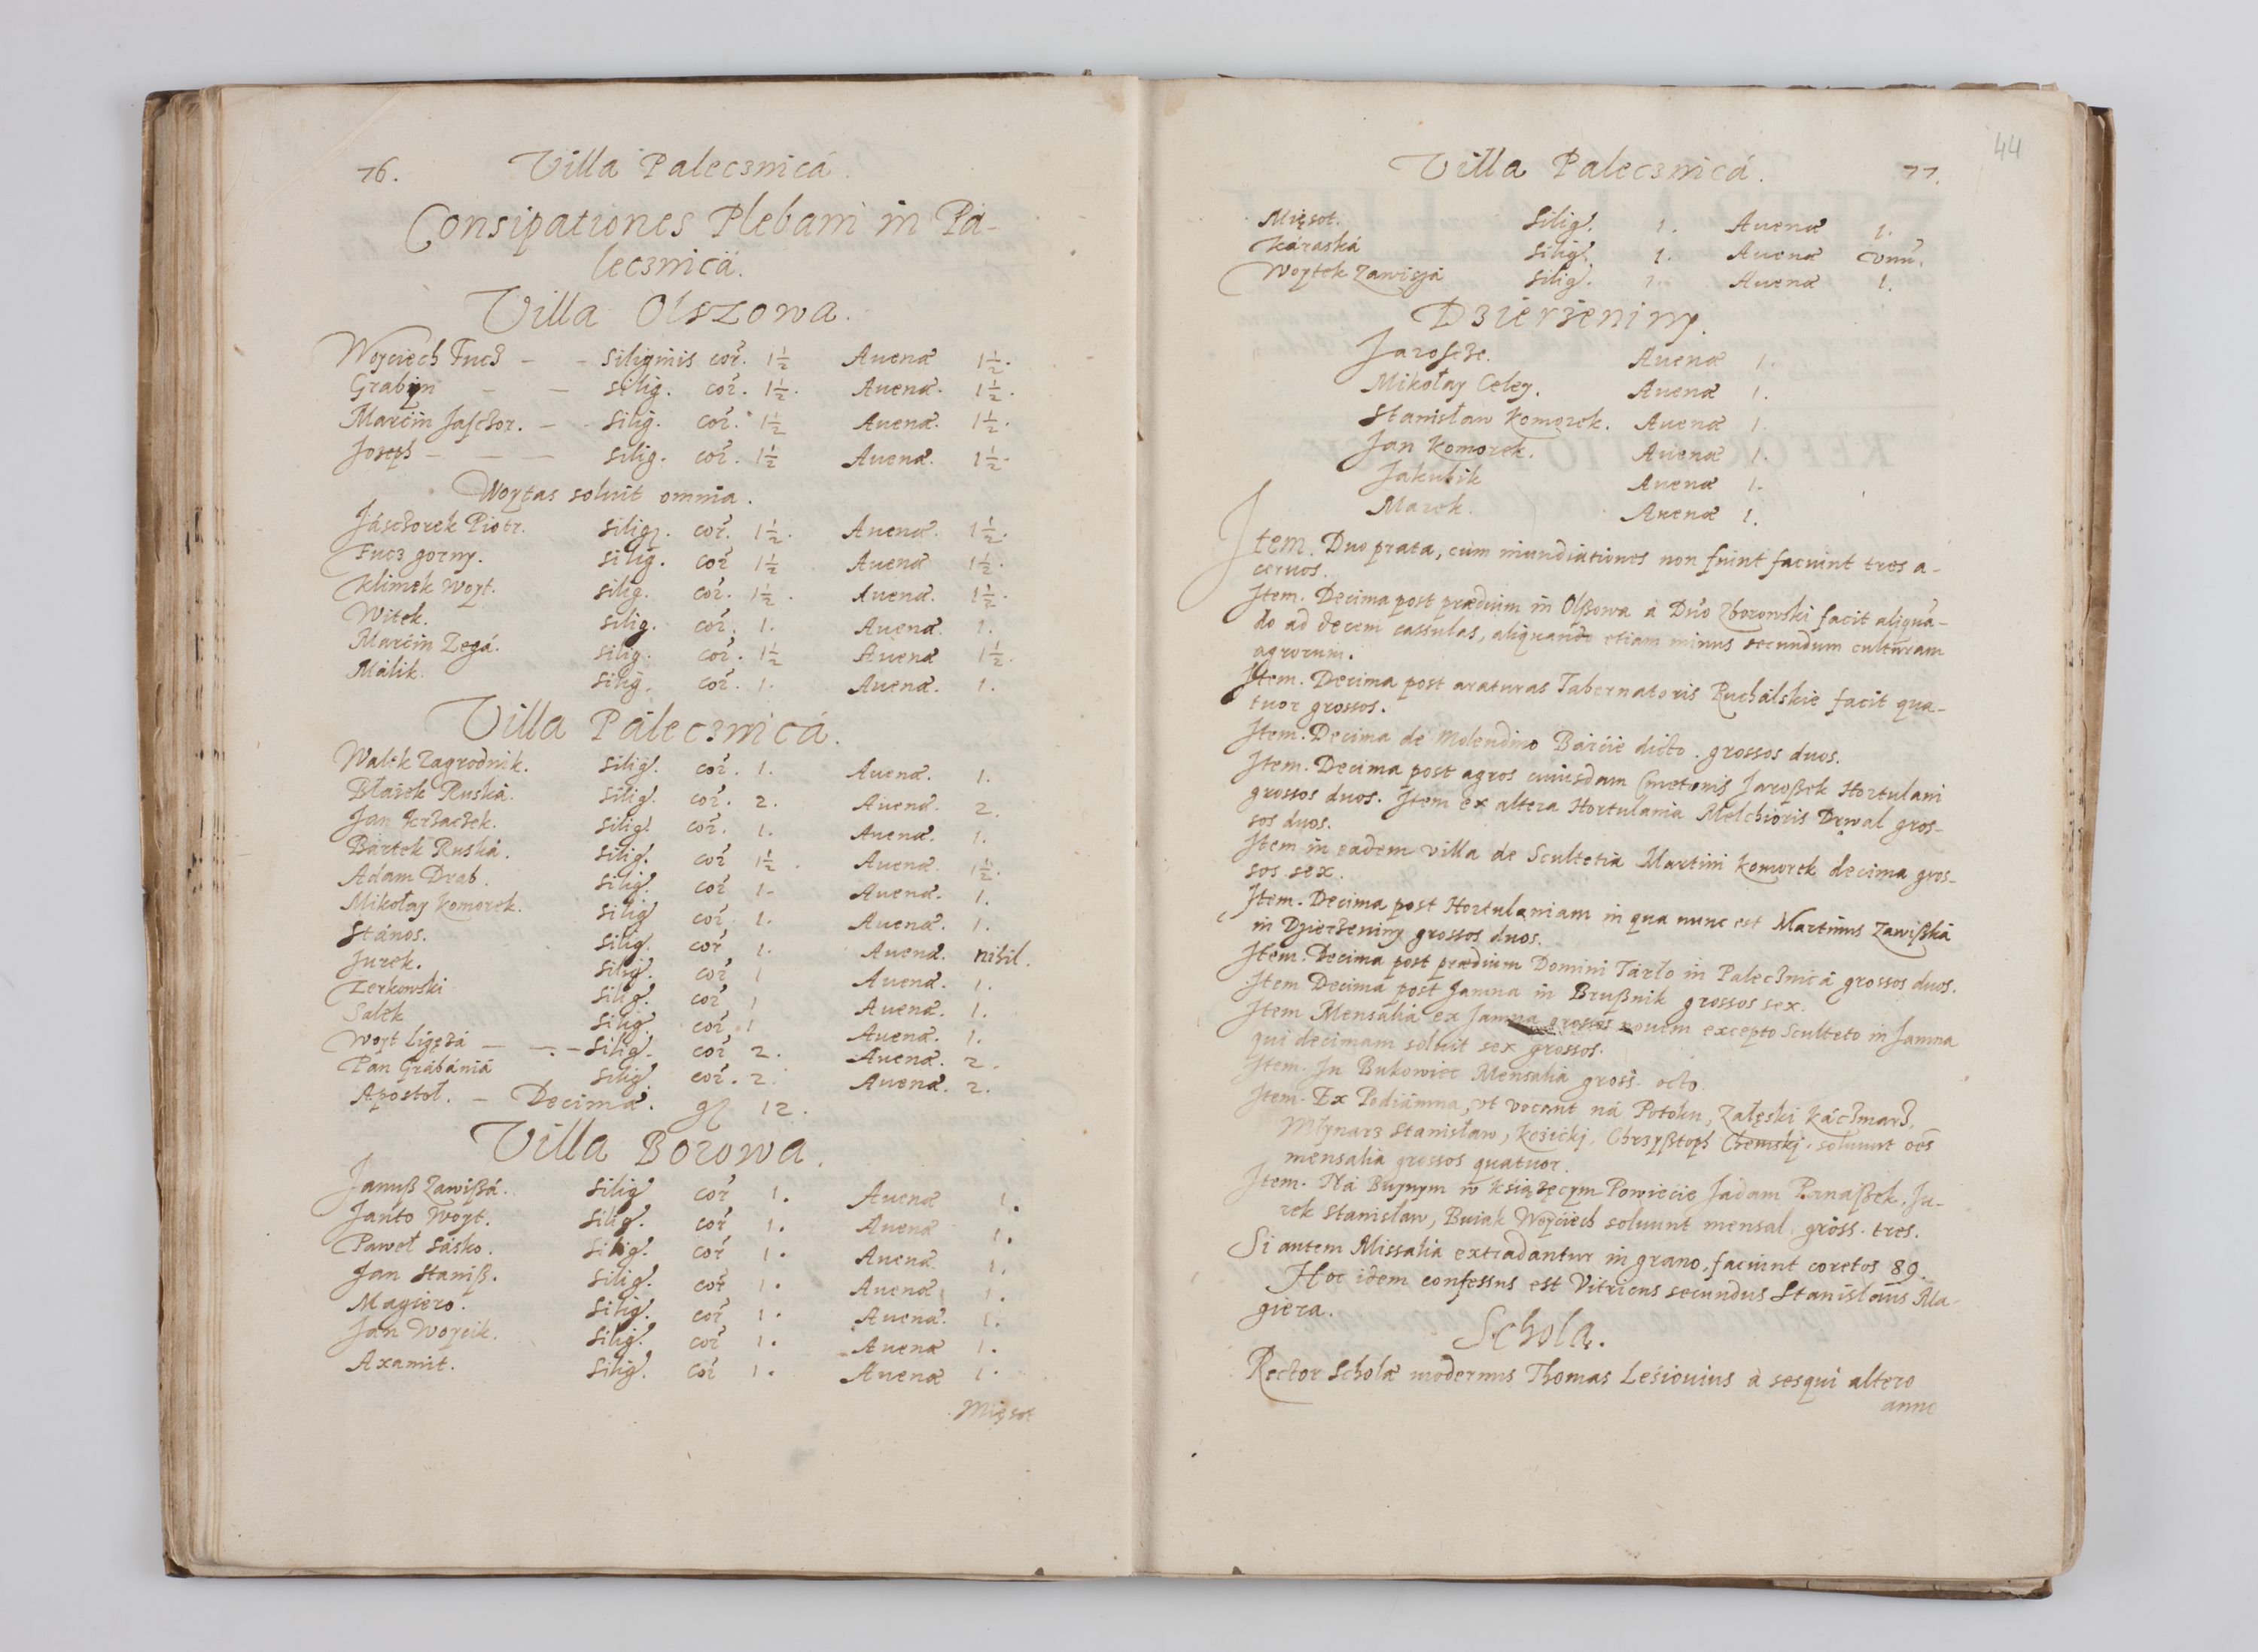 76. Villa Palecznicá.
Consipationes Plebani in Pa-
lecznicá.
Villa Olszowa.
Woyciech Fucz - - Siliginis cor. 1½ Auenæ 1½.
Grabyn - - Silig. cor. 1½. Auenæ. 1½.
Marcin Jaschor. - - Silig. cor. 1½ Auenæ. 1½.
Joseph - - - Silig. cor. 1½ Auenæ. 1½.
Woytas soluit omnia.
Jáschorek Piotr. Silig. cor. 1½. Auenæ. 1½.
Fucz gorny. Silig. cor 1½ Auenæ 1½.
Klimek Woyt. Silig. cor. 1½. Auenæ. 1½.
Witek. Silig. cor. 1. Auenæ. 1.
Marcin Zegá. Silig. cor. 1½ Auenæ 1½.
Málik. Silig. cor. 1. Auenæ. 1.
Villa Pálecznicá.
Walek Zagrodnik. Silig. cor. 1. Auenæ. 1.
Błażek Ruská. Silig. cor. 2. Auenæ. 2.
Jan Silig. cor. 1. Auenæ. 1.
Bártek Ruská. Silig. cor 1½. Auenæ. 1½.
Adam Drab. Silig. cor 1. Auenæ. 1.
Mikołay Komorek. Silig cor. 1. Auenæ. 1.
Stános. Silig. cor 1. Auenæ. nihil.
Jurek. Silig. cor 1 Auenæ. 1.
Zerkowski Silig. cor 1 Auenæ. 1.
Salek Silig. cor. 1 Auenæ. 1.
Woyt Ligęzá - - - Silig. cor 2. Auenæ. 2.
Pan Grábániá Silig. cor. 2. Auenæ. 2.
Apostoł. - Decima. g 12.
Villa Borowa.
Janusz Zawiszá. Silig cor 1. Auenæ 1.
Janto Woyt. Silig. cor 1. Auenæ 1.
Paweł Sásko. Silig. cor 1. Auenæ. 1.
Jan Stanisz. Silig. cor 1. Auenæ 1.
Magiero. Silig. cor 1. Auenæ. 1.
Jan Woycik. Silig. cor 1. Auenæ 1.
Axamit. Silig. cor 1. Auenæ 1.
Mięsot
44
Villa Palecznicá. 77.
Mięsot. Silig. 1. Auenæ 1.
Káraská Silig. 1. Auenæ vnũ.
Woytek Zawiszá Silig. 1. Auenæ 1.
Dzierżeniny.
Jarosche. Auenæ 1.
Mikołay Celey. Auenæ 1.
Stanisław Komorek. Auenæ 1.
Jan Komorek. Auenæ 1.
Jakubik Auenæ 1.
Marek. Auenæ 1.
Item. Duo prata, cum inundiationes non fuint faciunt tres a-
ceruos.
Item. Decima post prædium in Olßowa a Dño Zborowski facit aliquã-
do ad decem cassulas, aliquando etiam minus secundum culturam
agrorum.
Item. Decima post araturas Tabernatoris Ruchálskie facit qua-
tuor grossos.
Item. Decima de Molendino Bárcie dicto. grossos duos.
Item. Decima post agros cuiusdam Cmetonis Jaroßek Hortulani
grossos duos. Item ex altera Hortulania Melchioris Drwal gros-
sos duos.
Item in eadem villa de Scultetia Martini Komorek decima gros-
sos sex.
Item. Decima post Hortulaniam in qua nunc est Martinus Zawißká
in Dzierżeniny grossos duos.
Item. Decima post prædium Domini Tárło in Palecznicá grossos duos.
Item Decima post Jamna in Brußnik grossos sex.
Item Mensalia ex Jamna grossos nouem excepto Sculteto in Jamna
qui decimam soluit sex grossos.
Item. In Bukowiec Mensalia gross. octo.
Item. Ex Podiámna, vt vocant ná Potoku, Załęski Káczmarz,
Młynarz Stanisław, Kożicki, Chrzyßtoph Chemski. soluunt oẽs
mensalia grossos quatuor.
Item. Ná Buynym w Książęcym Powiecie Jadam Ju-
rek Stanisław, Buiak Woyciech soluunt mensal. gross. tres.
Si autem Missalia extradantur in grano, faciunt coretos 89.
Hoc idem confessus est Vitricus secundus Stanislaus Ma-
giera.
Schola.
Rector Scholæ modernus Thomas Lesiouius à sesqui altero
anno